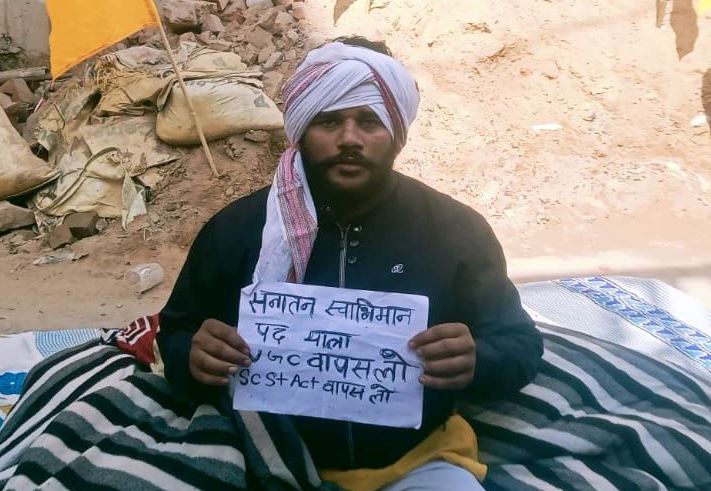 सनातन स्वाभिमान
पद यात्रा
UGC वापस लो
SC St Act वापस लो